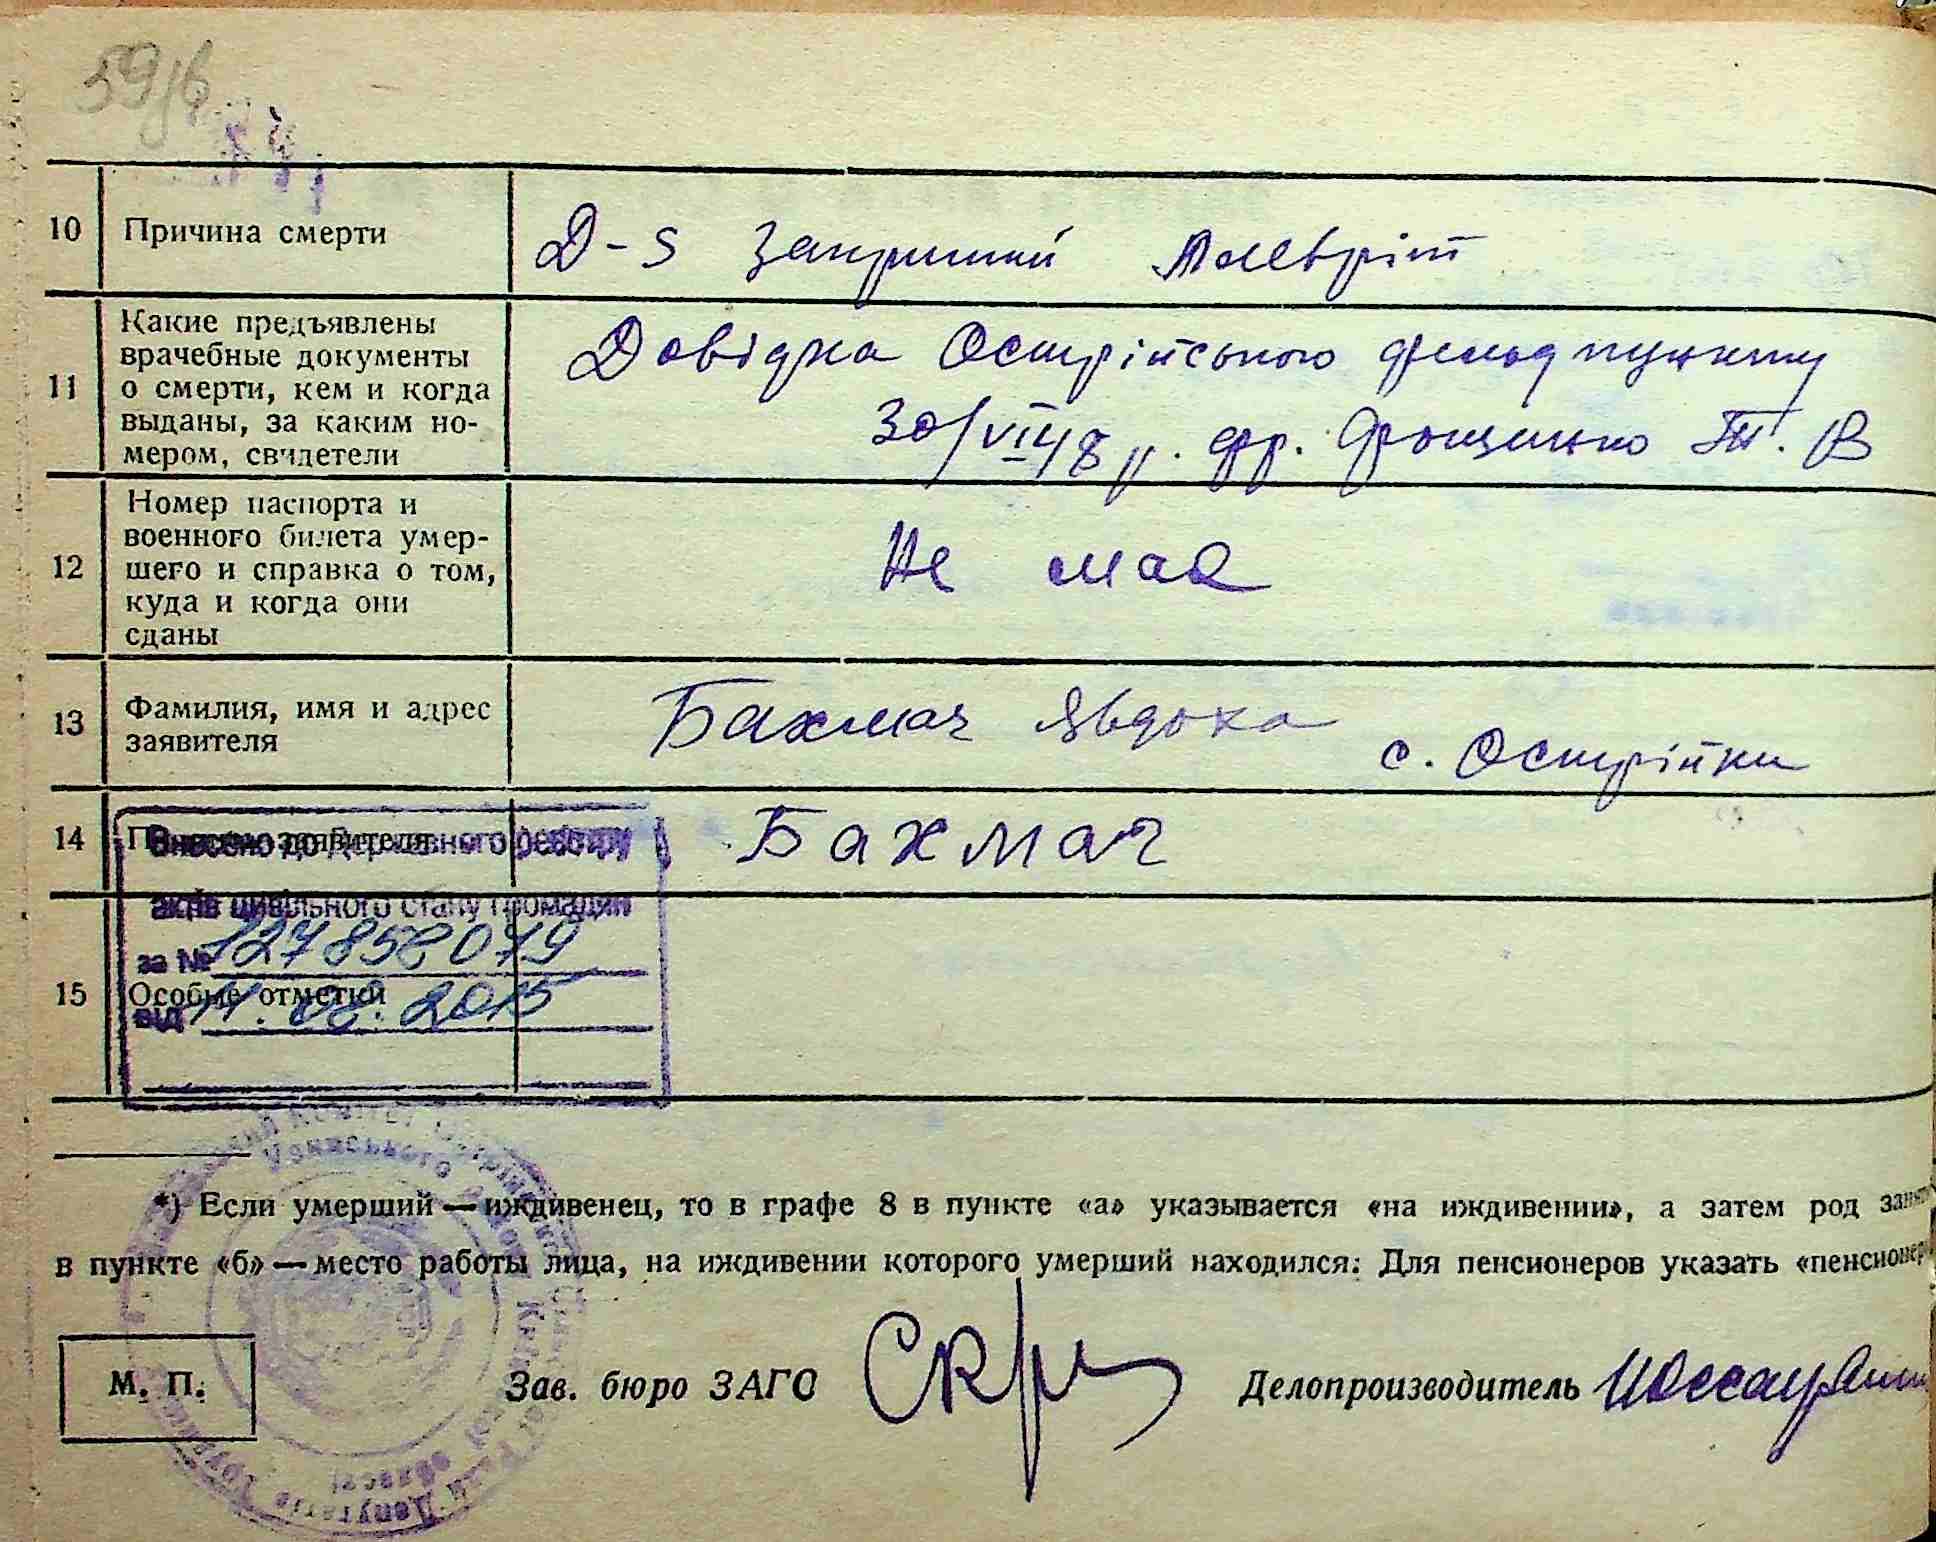 59/в
10 Причина смерти
Д-s Закритий Плевріт
11 Какие предъявлены
врачебные документы
о смерти, кем и когда
выданы, за каким но-
мером, свидетели
Довідка Острійського фельдпункту
30/VI 48 р. фр. Т. В
12 Номер паспорта и
военного билета умер-
шего и справка о том,
куда и когда они
сданы
Не має
13 Фамилия, имя и адрес
заявителя
Бахмач Явдоха
с. Острійки
14 заявителя
Бахмач
Внесено до Державного реєстру
актів цивільного стану громадян
за № 127858079
15 Особые отметки
від 11.08.2015
*) Если умерший — иждивенец, то в графе 8 в пункте «а» указывается «на иждивении», а затем род
в пункте «б» — место работы лица, на иждивении которого умерший находился. Для пенсионеров указать «пенсионер
М. П.
Зав. бюро ЗАГС
Делопроизводитель
Депутатів Трудящих
області